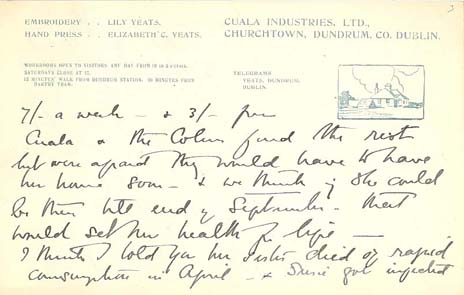 3
EMBROIDERY . . LILY YEATS.
HAND PRESS . . ELIZABETH C. YEATS.
CUALA INDUSTRIES, LTD.,
CHURCHTOWN, DUNDRUM, CO. DUBLIN.
WORKROOMS OPEN TO VISITORS ANY DAY FROM 10 TO
SATURDAYS CLOSE AT
12 MINUTES' WALK FROM DUNDRUM STATION. 20 MINUTES FROM
TRAM.
TELEGRAMS
YEATS, DUNDRUM,
DUBLIN.
7/- a week - & 3/- from
Cuala & the Colums find the rest
but were afraid they would have to have
her home soon - & we think if she could
be there till end of September - that
would set her health for life —
I think I told you her sister died of rapid
consumption in April - & Susie got infected